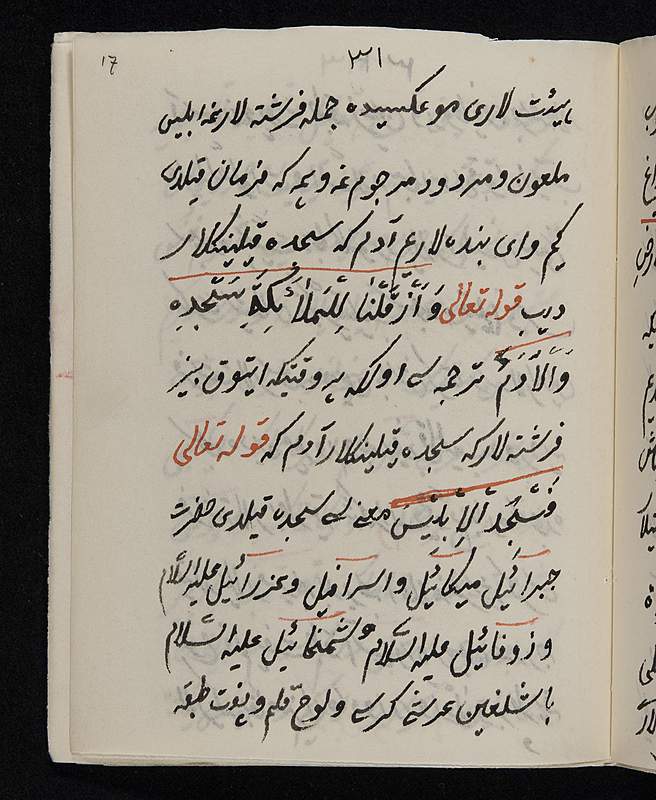 17
۳۱
هیئت لاری مو عکسیده جمله فرشته لارغه ابلیس
ملعون و مردود مرجوم غه و یمه که فرمان قیلدی
کیم وای بنده لاریم آدم که سجده قیلینکلار
دیب قوله تعالی وَاَزْقُلْنا لِلْمَلاٰئِکَةِ سَنَّجِدِه
وَالاَدَمُ ترجمه سی اولکه بر وقتیکه ایتوق بیز
فرشته لارکه سجده قیلینکلار آدم که قوله تعالی
فَسَّجُدْ اَلاِبلِیْسَ معنی سی سجده قیلدی حضرت
جبرائیل میکائیل و اسرافیل و عزرائیل علیه السلام
و زوفائیل علیه السلام و شمنحائیل علیه السلام
باشلغین عرشی کرسی و لوح قلم و یفت طبقه